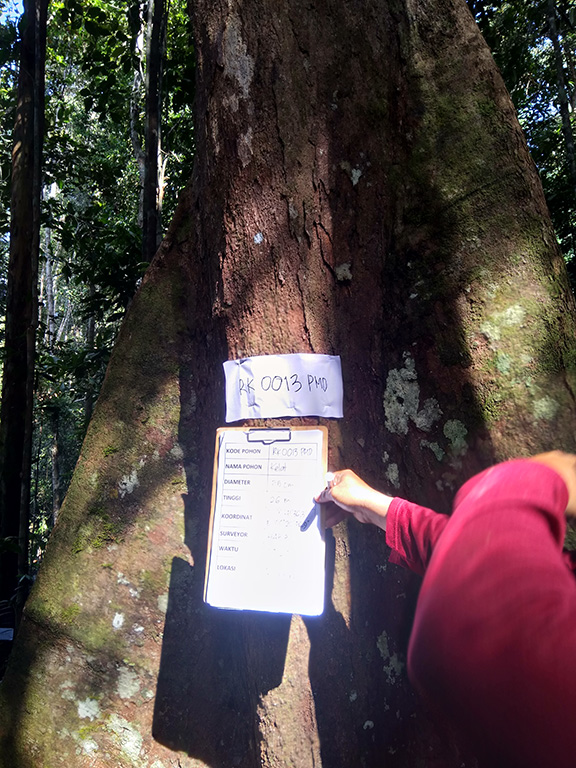 RK 0013 PMD
KODE POHON RK 0013 PMD
NAMA POHON Kelat
DIAMETER cm
TINGGI 26 m
KOORDINAT
SURVEYOR
WAKTU
LOKASI